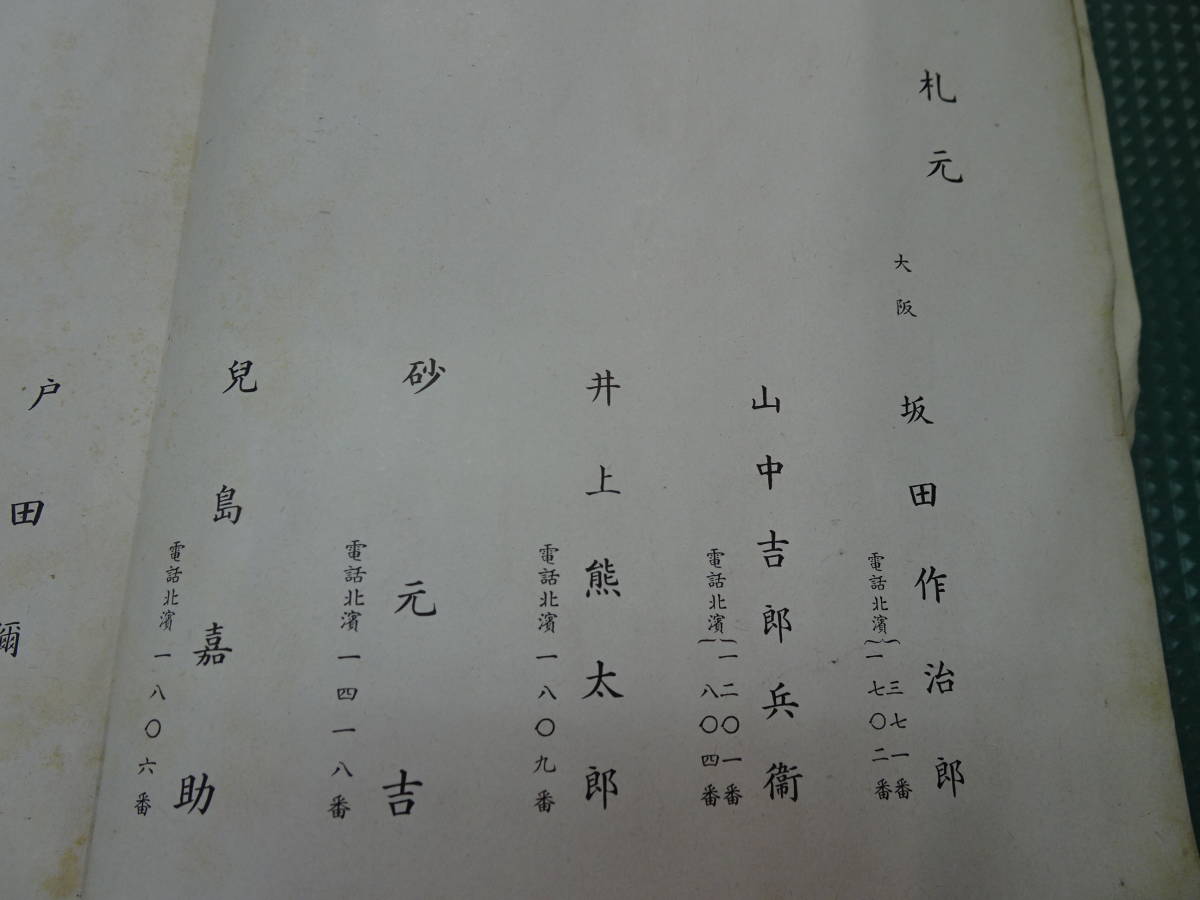 札元
大阪
坂田作治郎
電話北濱
三七一番
一七〇二番
山中吉郎兵衞
電話北濱
一二〇一番
八〇四番
井上熊太郎
電話北濱一八〇九番
砂元吉
電話北濱一四一八番
兒島嘉助
電話北濱一八〇六番
戸田爾